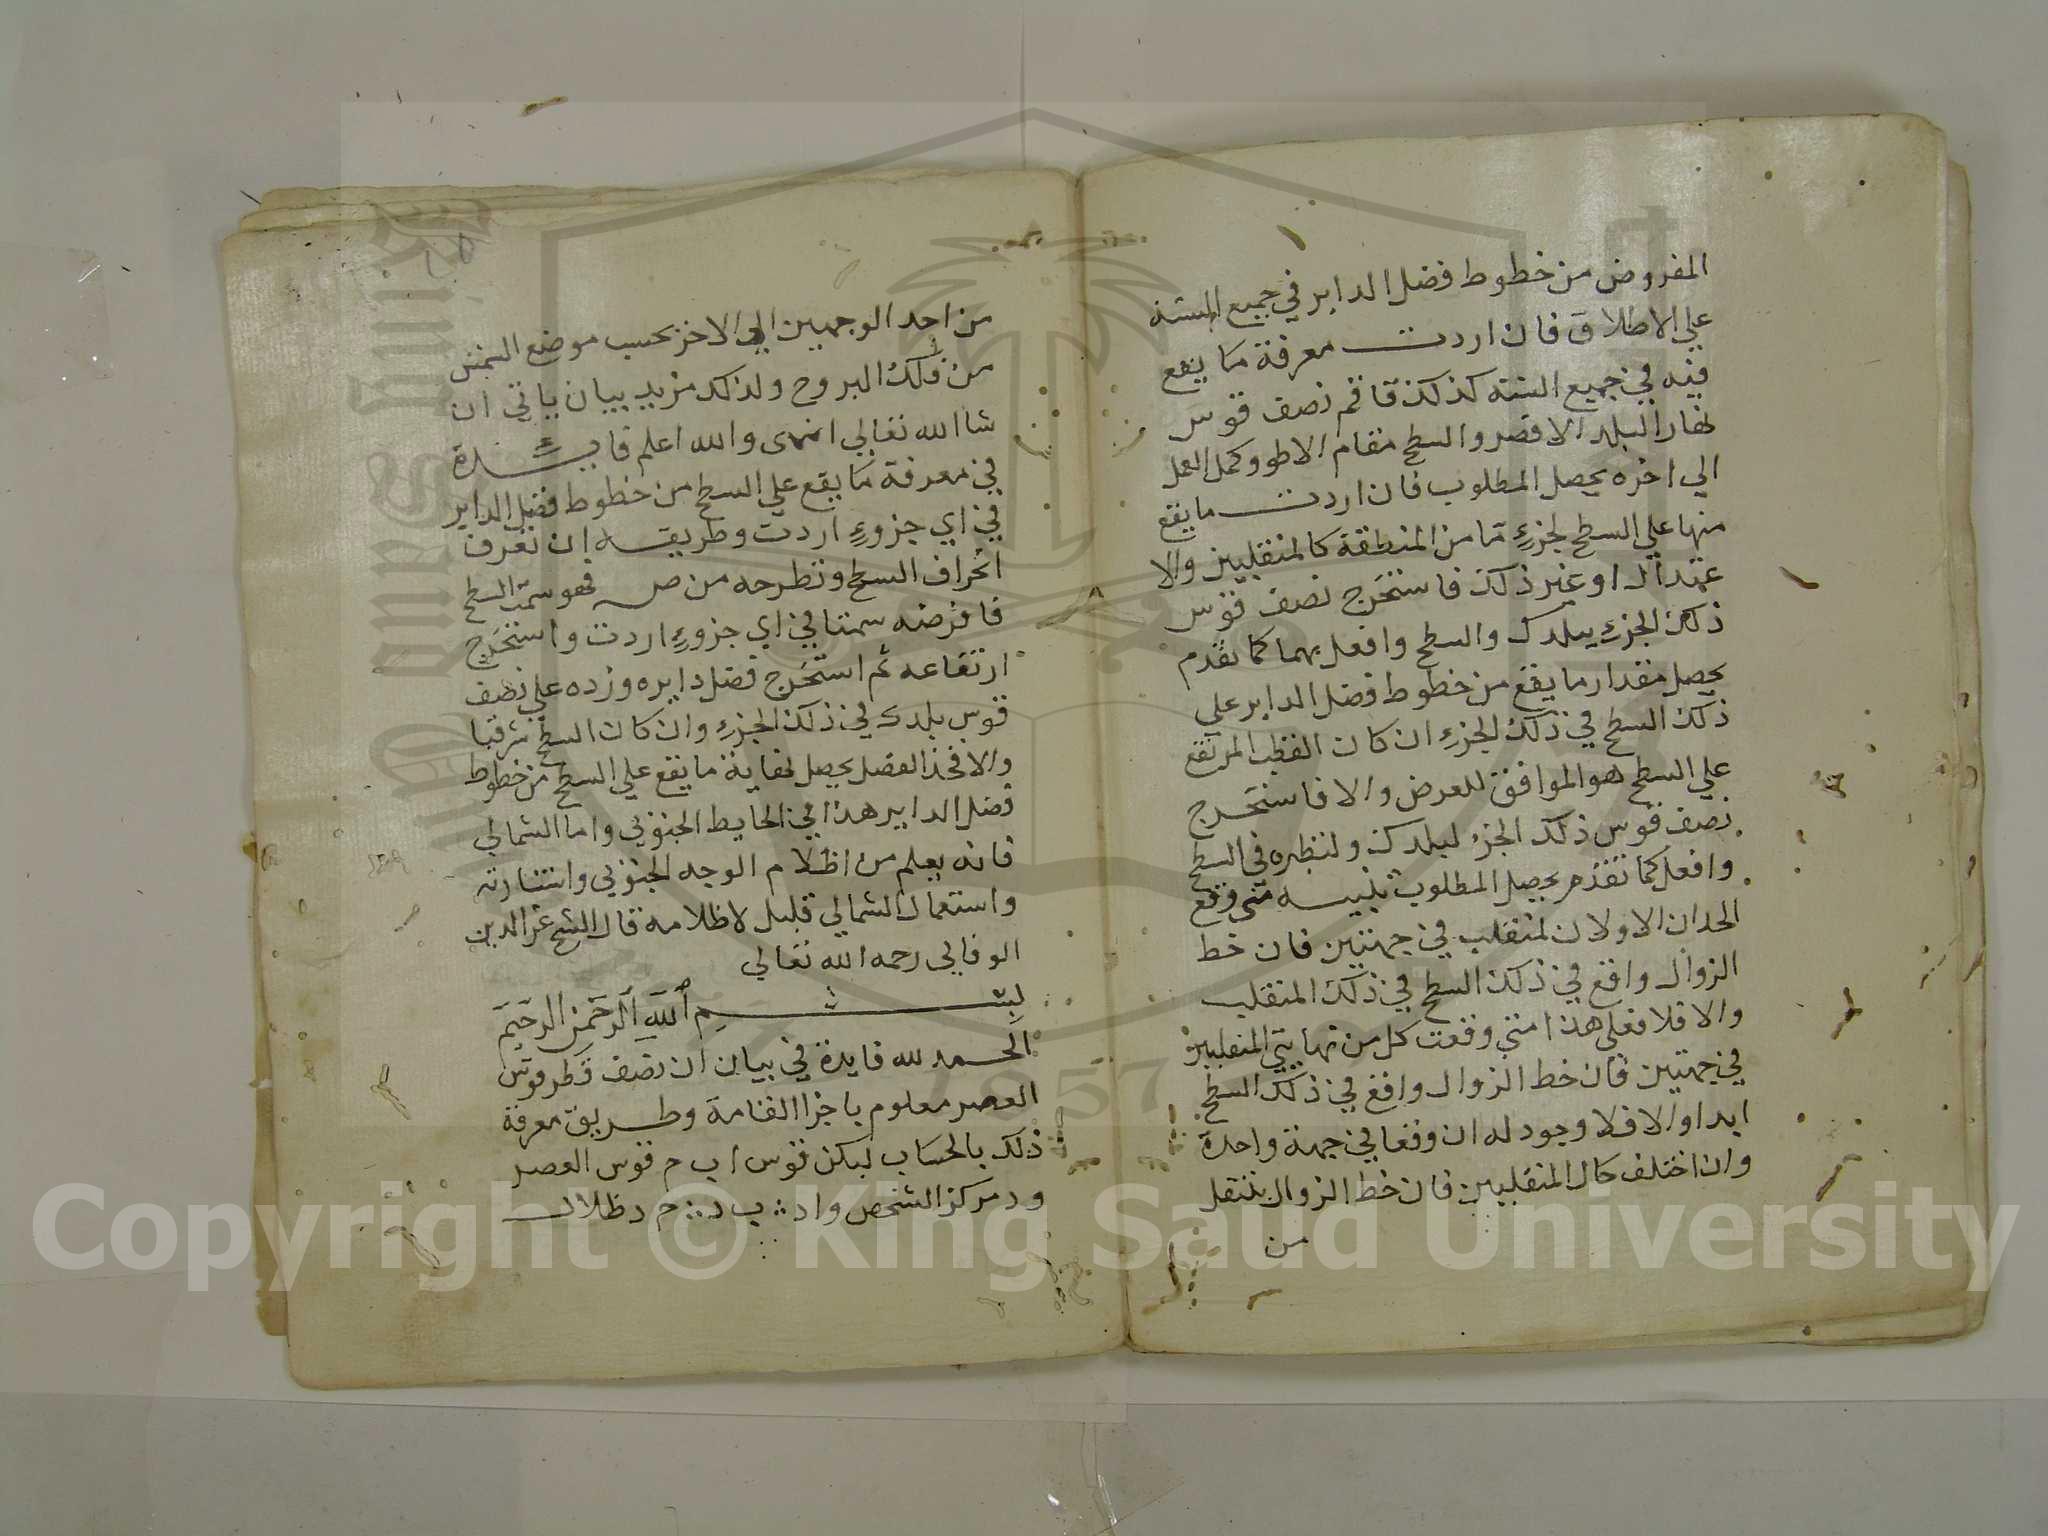 المفروض من خطوط فضل الداير في جميع السنة
علي الاطلاق فان اردت معرفة ما يقع
فيه في جميع السنة كذلك فاقم نصف قوس
نهار البلد الاقصر والسطح مقام الاطول وكمل العمل
الي اخره يحصل المطلوب فان اردت ما يقع
منها علي السطح لجزءٍ ما من المنطقة كالمنقلبين والا
عتدال او غير ذلك فاستخرج نصف قوس
ذلك الجزء ببلدك والسطح وافعل بهما كما تقدم
يحصل مقدار ما يقع من خطوط فضل الداير علي
ذلك السطح في ذلك الجزء ان كان القطب المرتفع
علي السطح هو الموافق للعرض والا فاستخرج
نصف قوس ذلك الجزء لبلدك ولنظيره في السطح
وافعل كما تقدم يحصل المطلوب تنبيه متي وقع
الحدان الاولان لمنقلب في جهتين فان خط
الزوال واقع في ذلك السطح في ذلك المنقلب
والا فلا فعلي هذا متي وقعت كل من نهايتي المنقلبين
في جهتين فان خط الزوال واقع في ذلك السطح
ابدا والا فلا وجود له ان وقعا في جهة واحدة
وان اختلف حال المنقلبين فان خط الزوال ينتقل
من
من احد الوجهين الي الاخر بحسب موضع الشمس
من فلك البروج ولذلك مزيد بيان ياتي ان
شا الله تعالي انتهى والله اعلم فايدة
في معرفة ما يقع علي السطح من خطوط فضل الداير
في اي جزوءٍ اردت وطريقه ان تعرف
انحراف السطح وتطرحه من ص فهو سمت السطح
فافرضه سمتا في اي جزوءٍ اردت واستخرج
ارتفاعه ثم استخرج فضل دايره وزده علي نصف
قوس بلدك في ذلك الجزء وان كان السطح شرقيا
والا فخذ الفضل يحصل نهاية ما يقع علي السطح من خطوط
فضل الداير هذا في الحايط الجنوبي واما الشمالي
فانه يعلم من اظلام الوجه الجنوبي واستنارته
واستعمال الشمالي قليل لاظلامه قال الشيخ عز الدين
الوفايي رحمه الله تعالي
بسم الله الرحمن الرحيم
الحمد لله فايدة في بيان ان نصف قطر قوس
العصر معلوم باجزا القامة وطريق معرفة
ذلك بالحساب ليكن قوس ا ب م قوس العصر
ود مركز الشخص واد ب د م د ظلال
Copyright © King Saud University
1957